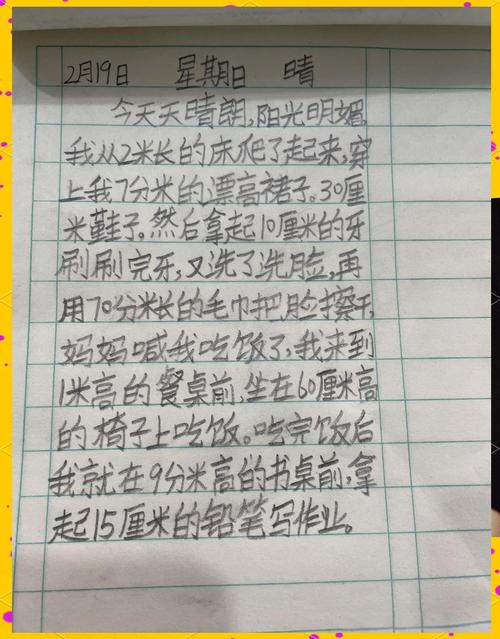 2月19日 星期日 晴
今天天晴朗,阳光明媚,
我从2米长的床爬了起来,穿
上我7分米的漂高裙子。30厘
米鞋子。然后拿起10厘米的牙
刷刷完牙,又洗了洗脸,再
用70分米长的毛巾把脸擦干,
妈妈喊我吃饭了,我来到
1米高的餐桌前,坐在60厘米高
的椅子上吃饭。吃完饭后
我就在9分米高的书桌前,拿
起15厘米的铅笔写作业。